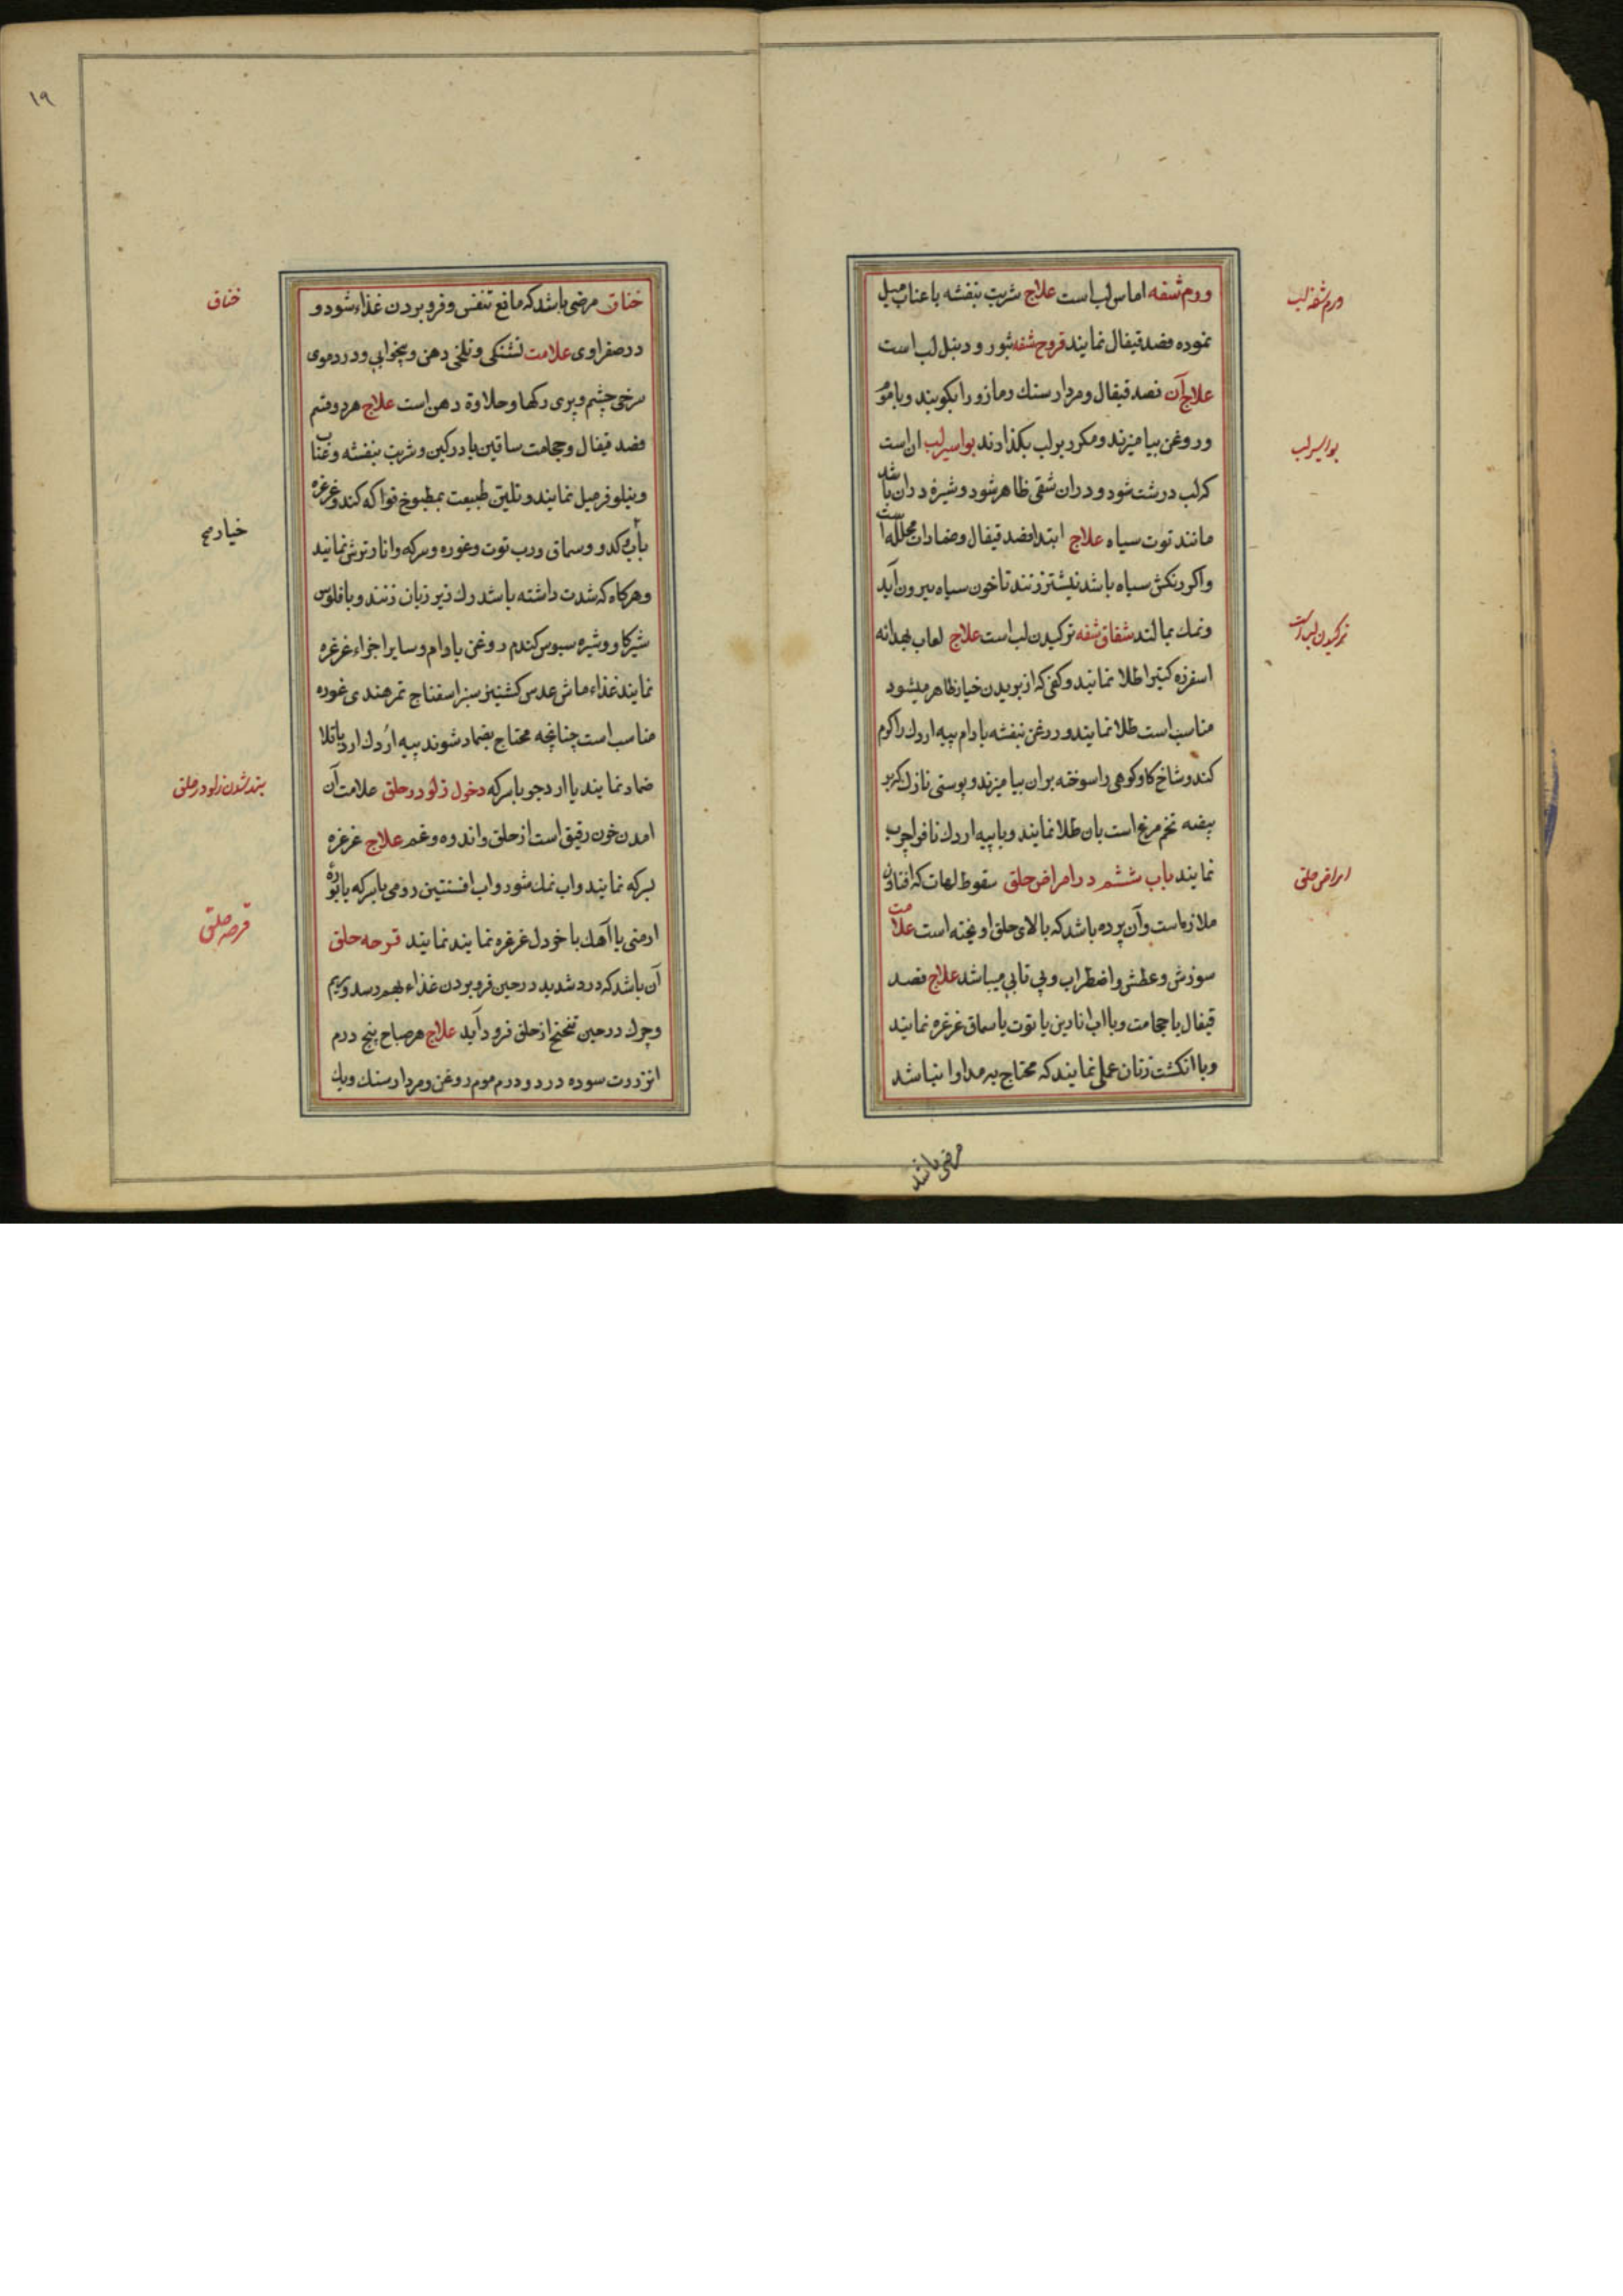 ورم شفه اماس لب است علاج شربت بنفشه با عناب میل
نموده فصد قیفال نمایند قروح شفه بثور و دنبل لب است
علاج آن فصد قیفال و مردار سنك و مازو را بکوبند و با موم
و روغن بیامیزند و مکرر بر لب بگذارند بواسیر لب ان است
که لب درشت شود و دران شقی ظاهر شود و شیره دران باشد
مانند توت سیاه علاج ابتدا فصد قیفال و ضمادات محلله است
واکر رنکش سیاه باشد نیشتر زنند تا خون سیاه بیرون آید
و نمك بمالند شقاق شفه ترکیدن لب است علاج لعاب بهدانه
اسفرزه کتیرا طلا نمایند و کفی که از بریدن خیار ظاهر میشود
مناسب است طلا نمایند و روغن بنفشه بادام پیه اردك را کرم
کنند و شاخ کاو کوهی را سوخته بران بیامیزند و پوستی نازك که بر
بیضه تخم مرغ است بان طلا نمایند و با پیه اردك ناف را چرب
نمایند باب ششم در امراض حلق سقوط لهات که افتادن
ملازه است وآن پرده باشد که بالای حلق اویخته است علامت
سوزش و عطش و اضطراب و بی تابی میباشد علاج فصد
قیفال یا حجامت و با اب انارین یا توت یا سماق غرغره نمایند
و با انکشت زنان عملی نمایند که محتاج به مداوا نباشد
مرضی باشد
ورم شفه لب
بواسیر لب
ترکیدن لب است
امراض حلق
۱۹
خناق مرضی باشد که مانع تنفس و فرو بردن غذاء شود و
در صفراوی علامت تشنکی و تلخی دهن و بیخوابی و در دموی
سرخی چشم و پری رکها و حلاوة دهن است علاج هر دو قسم
فصد قیفال و حجامت ساقین یا در کین و شربت بنفشه و عناب
و نیلوفر میل نمایند و تلیین طبیعت بمطبوخ فواکه کند و غرغره
بآب کدو و سماق و رب توت و غوره و سرکه و انار ترش نمایند
و هرکاه که شدت داشته باشد رك زیر زبان زنند و با فلوس
شیر کاو و شیره سبوس کندم روغن بادام و سایر اجزاء غرغره
نمایند غذاء ماش عدس کشنیز سبز اسفناج تمر هندی غوره
مناسب است چنانچه محتاج بضماد شوند پیه اردك ارد باقلا
ضماد نمایند یا ارد جو با سرکه دخول زلو در حلق علامت آن
امدن خون رقیق است از حلق و اندوه و غم علاج غرغره
بسرکه نمایند و اب نمك شور و اب افسنتین رومی با سرکه یا بوره
ارمنی یا آهك با خردل غرغره نمایند نمایند قرحه حلق
آن باشد که درد شدید در حین فرو بردن غذاء بهم رسد و ریم
و چرك در حین تنحنح از حلق فرود آید علاج هر صباح پنج درم
انزروت سوده در دو درم موم روغن و مردار سنك و یك
خناق
بند شدن زلو در حلق
قرحه حلق